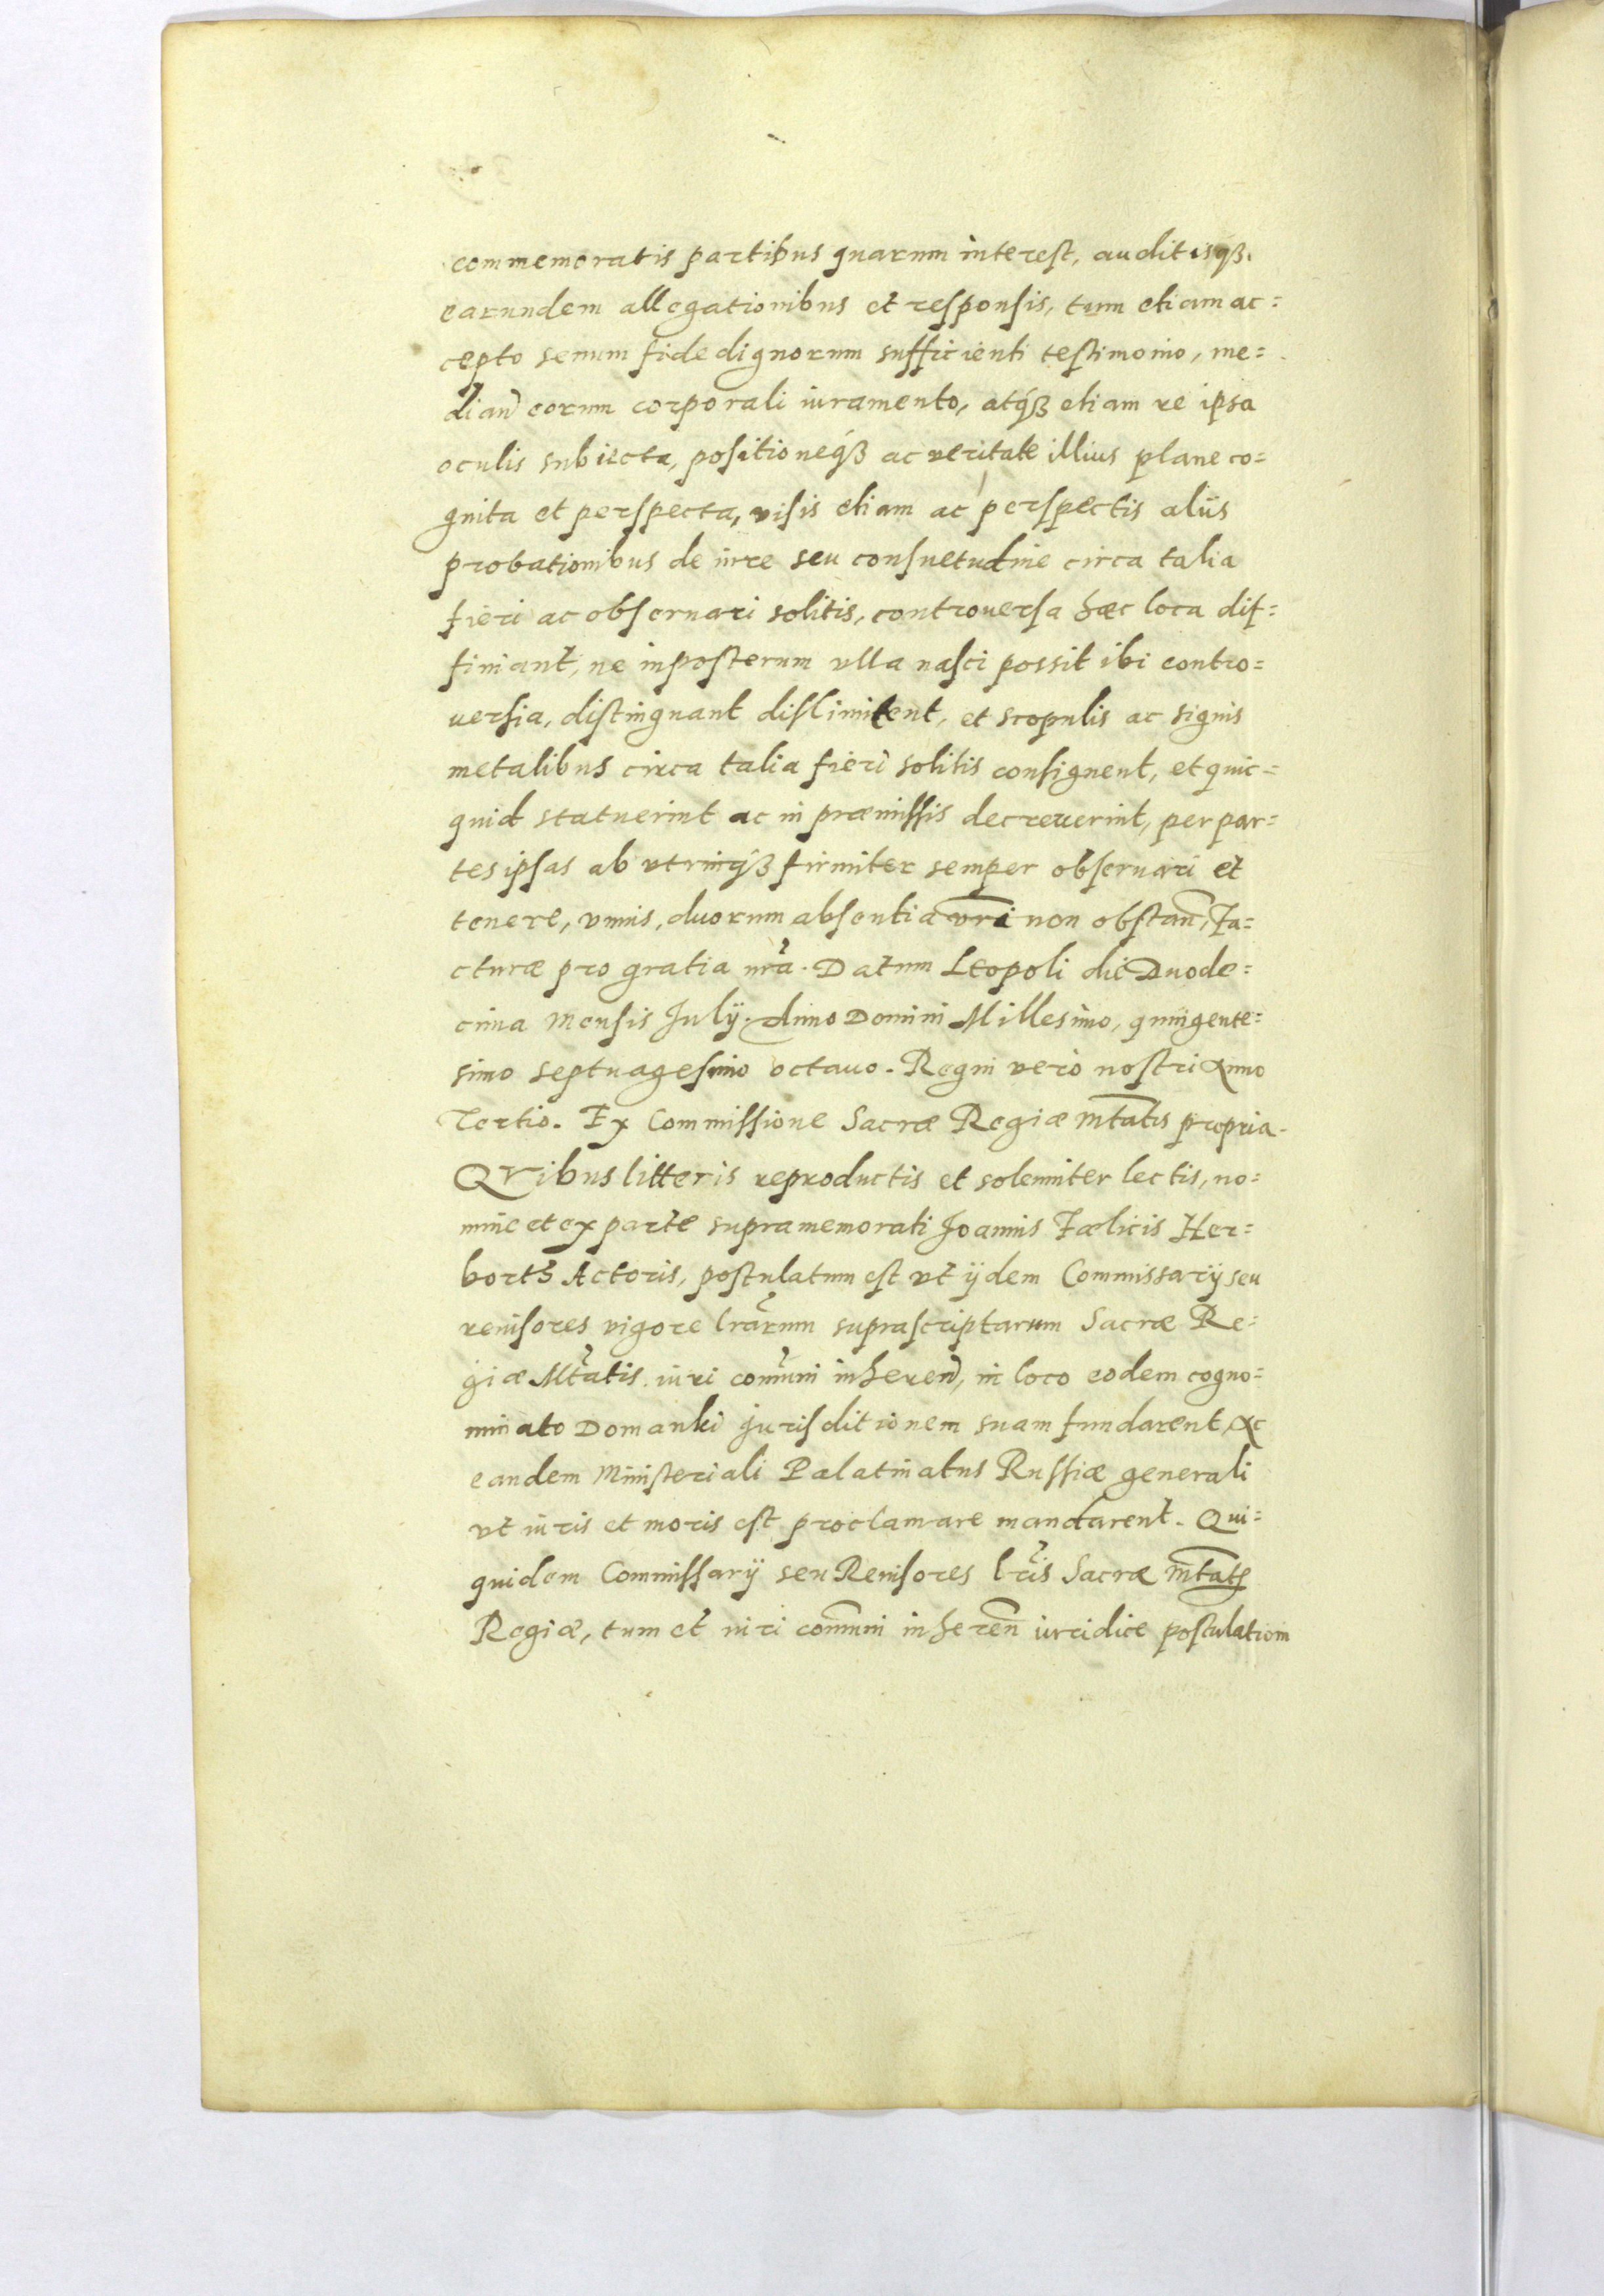 commemoratis partibus quarum interest, auditisqȝ.
earundem allegationibus et responsis, tum etiam ac=
cepto senum fide dignorum sufficienti testimonio, me=
dian̄ eorum corporali iuramento, atqȝ etiam re ipsa
oculis subiecta, positioneqȝ ac veritate illius plane co=
gnita et perspecta, visis etiam ac perspectis aliis
probationibus de iure seu consuetudine circa talia
fieri ac obseruari solitis, controuersa hæc loca dif=
finiant, ne inposterum vlla nasci possit ibi contro=
uersia, distinguant dislimitent, et scopulis ac signis
metalibus circa talia fieri solitis consignent, et quic=
quid statuerint ac in præmissis decreuerint, per par=
tes ipsas ab vtrinqȝ firmiter semper obseruari et
tenere, vnius, duorum absentia vr̄i non obstan̄, Fa=
cturæ pro gratia nr̄a. Datum Leopoli die Duode=
cima Mensis July. Anno Domini Millesimo, quingente=
simo septuagesimo octauo. Regni vero nostri Anno
Tertio. Ex Commissione Sacræ Regiæ Mt̄atis propria.
QVibus litteris reproductis et solemniter lectis, no=
mine et ex parte supramemorati Joannis Fœlicis Her=
borth Actoris, postulatum est vt ijdem Commissarij seu
reuisores vigore lr̄arum suprascriptarum Sacræ Re=
giæ Mt̄atis iuri com̄uni inheren̄, in loco eodem cogno=
minato Domanki Jurisditionem suam fundarent, Ac
eandem Ministeriali Palatinatus Russiæ generali
vt iuris et moris est proclamare mandarent. Qui=
quidem Commissarij seu Reuisores lr̄is Sacræ Mt̄atis
Regiæ, tum et iuri com̄uni inheren̄ iuridice postulationi